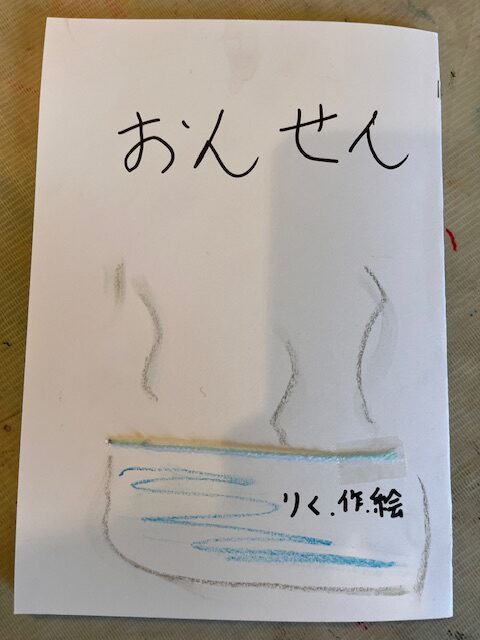 おんせん
りく.作.絵